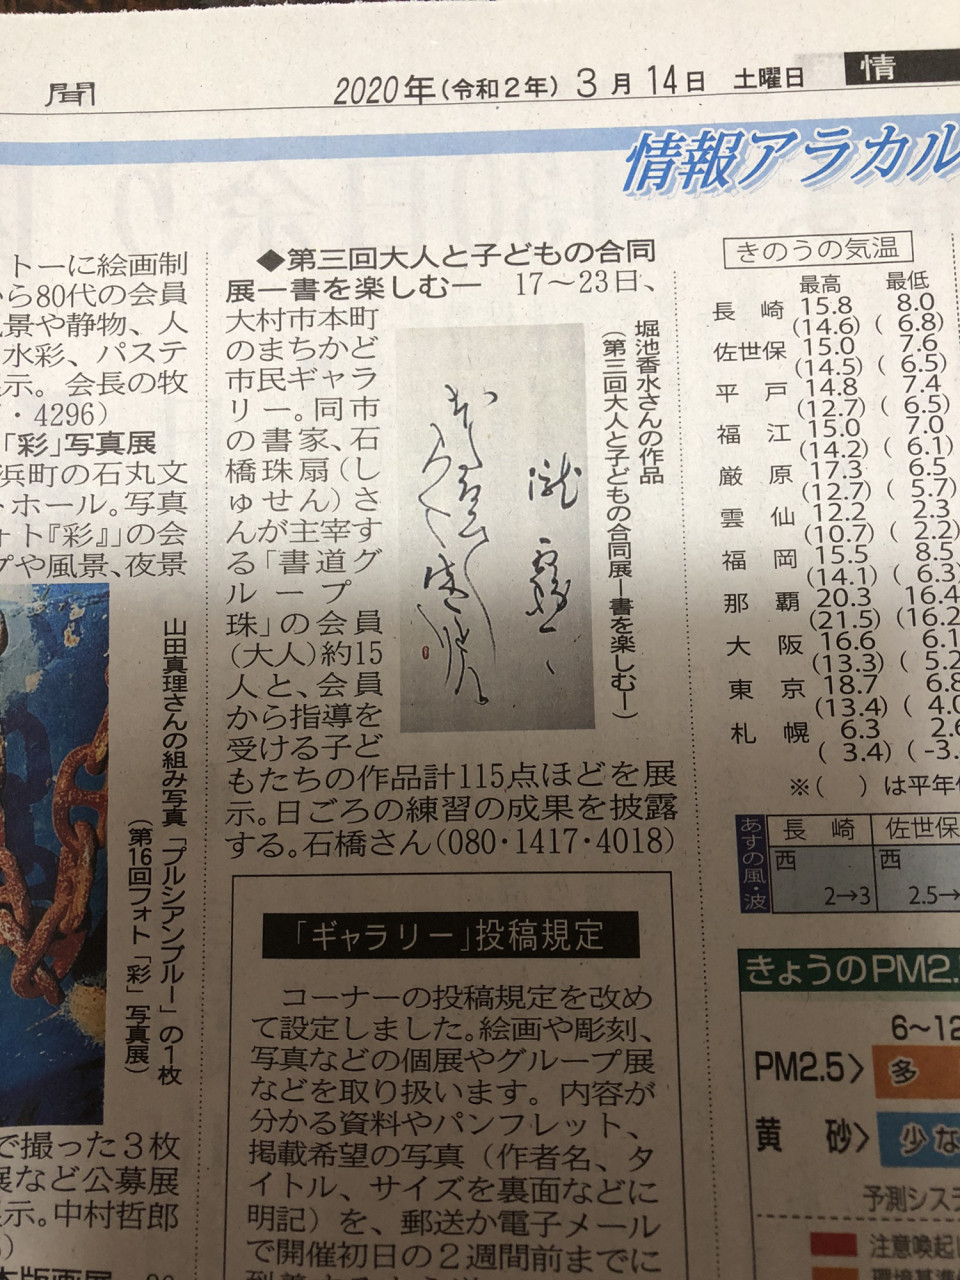 聞
2020年(令和2年) 3月14日 土曜日
情
情報アラカル
トーに絵画制
ら80代の会員
景や静物、人
水彩、パステ
示。会長の牧
・4296)
「彩」写真展
浜町の石丸文
トホール。写真
ォト『彩』」の会
プや風景、夜景
山田真理さんの組み写真「プルシアンブルー」の1枚
(第16回フォト「彩」写真展)
で撮った3枚
展など公募展
示。中村哲郎
◆第三回大人と子どもの合同
展ー書を楽しむー 17〜23日、
大村市本町
のまちかど
市民ギャラ
リー。同市
の書家、石
橋珠扇(し
ゅせん)さ
んが主宰す
る「書道グ
ループ
珠」の会員
(大人)約15
人と、会員
から指導を
受ける子ど
もたちの作品計115点ほどを展
示。日ごろの練習の成果を披露
する。石橋さん(080・1417・4018)
堀池香水さんの作品
(第三回大人と子どもの合同展ー書を楽しむー)
「ギャラリー」投稿規定
コーナーの投稿規定を改め
て設定しました。絵画や彫刻、
写真などの個展やグループ展
などを取り扱います。内容が
分かる資料やパンフレット、
掲載希望の写真(作者名、タ
イトル、サイズを裏面などに
明記)を、郵送か電子メール
で開催初日の2週間前までに
きのうの気温
最高 最低
長崎 15.8 8.0
(14.6) ( 6.8)
佐世保 15.0 7.6
(14.5) ( 6.5)
平戸 14.8 7.4
(12.7) ( 6.5)
福江 15.0 7.0
(14.2) ( 6.1)
厳原 17.3 6.5
(12.7) ( 5.7)
雲仙 12.2 2.3
(10.7) ( 2.2)
福岡 15.5 8.5
(14.1) ( 6.3)
那覇 20.3 16.4
(21.5) (16.2
大阪 16.6 6.1
(13.3) ( 5.2
東京 18.7 6.8
(13.4) ( 4.0
札幌 6.3 2.6
( 3.4) (-3.
※( )は平年
あすの風・波
長崎 佐世保
西 西
2→3 2.5→
きょうのPM2.
6〜12
PM2.5> 多
黄砂> 少な
予測システ
注意喚起
環境基準